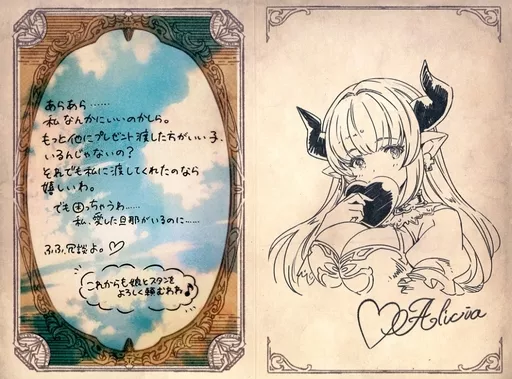 あらあら……
私なんかにいいのかしら。
もっと他にプレゼント渡した方がいい子
いるんじゃないの？
それでも私に渡してくれたのなら
嬉しいわ。
でも困っちゃうわ……
私、愛した旦那がいるのに……
ふふ、冗談よ。♡
これからも娘とスタンを
よろしく頼むわね♪
♡Alicia